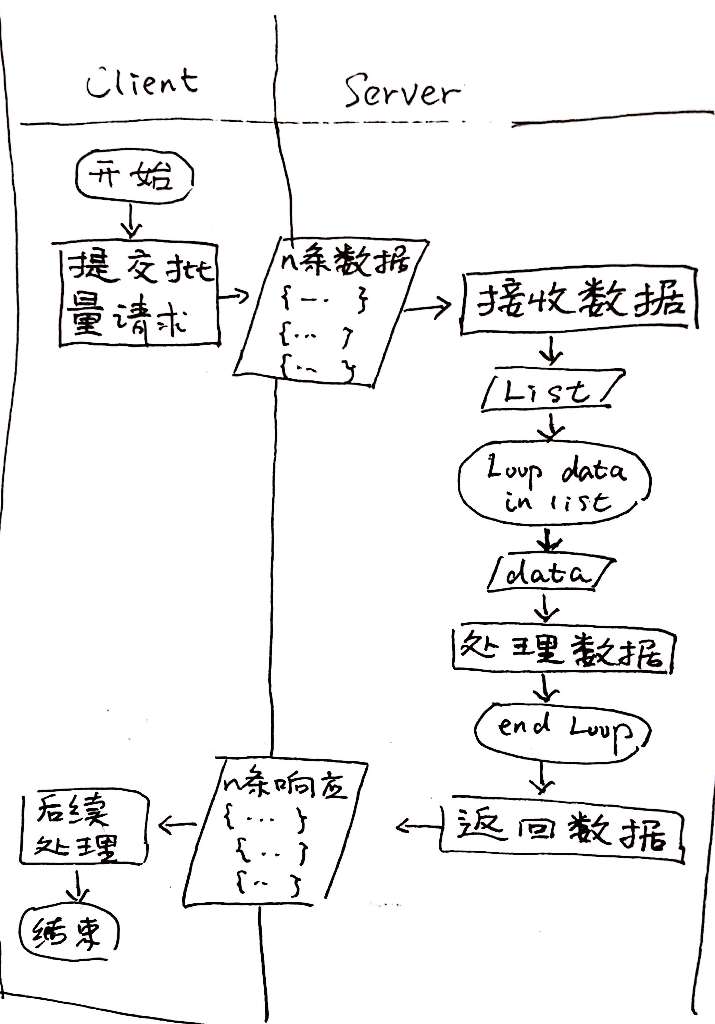 Client
Server
开始
提交批
量请求
n条数据
{ -- . }
{ ... }
{ ... }
接收数据
List
Loop data
in list
data
处理数据
end Loop
返回数据
n条响应
{ ... }
{ .. }
{ .. }
后续
处理
结束